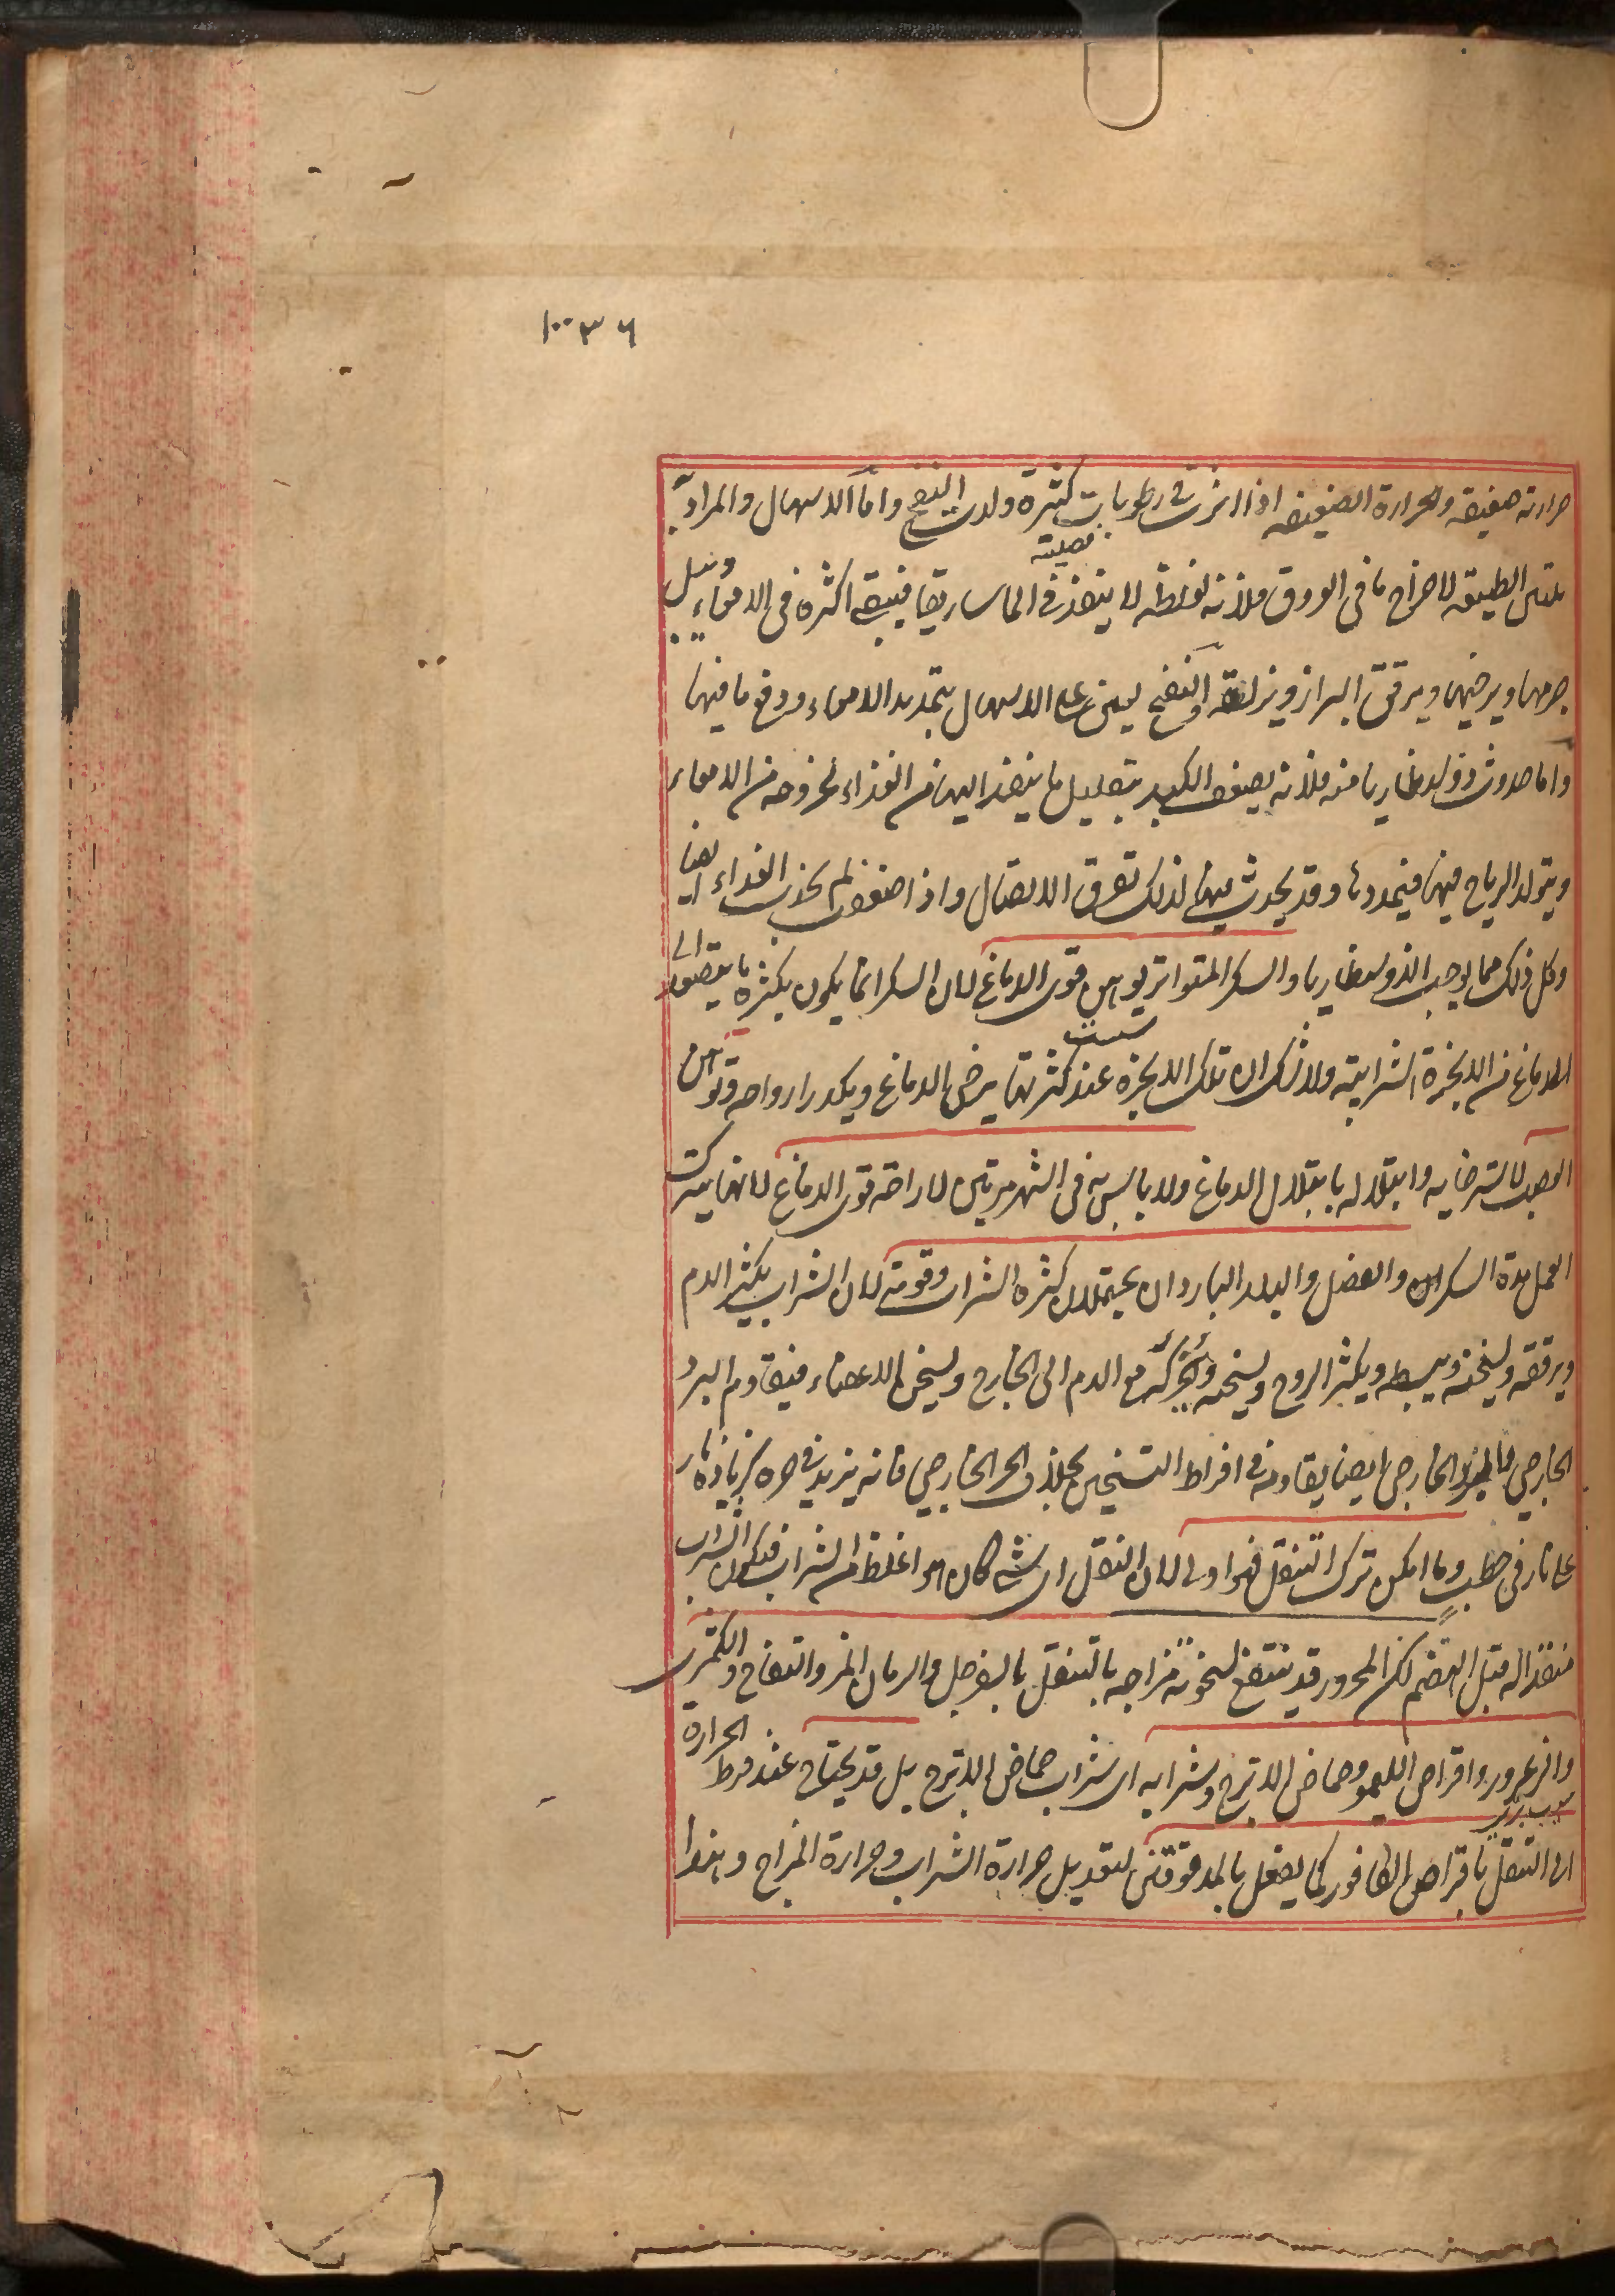 ١٠٠٣٦
حرارته ضعيفة والحرارة الضعيفة اذا اثرت في رطوبات كثيرة فضلية ولدت النفخ واما الاسهال والمراد به
تليين الطبيعة لاخراج ما في العروق فلانه لغلظه لا ينفذ في الماساريقا فيبقى اكثره في الامعاء ويبل
جرمها ويرخيها ويرقق البراز ويزلقه والنفخ يعين على الاسهال بتمديد الامعاء ودفع ما فيها
واما حدوث ذوسنطاريا منه فلانه يضعف الكبد بتقليل ما ينفذ اليها من الغذاء لخروجه من الامعاء
ويتولد الرياح فيها فيمددها وقد يحدث فيها لذلك تفرق الاتصال واذا ضعفت لم تجذب الغذاء ايضا
وكل ذلك مما يوجب الذوسنطاريا والسكر المتواتر يوهن قوى الدماغ لان السكر انما يكون بكثرة ما يتصعد الى
الدماغ من الابخرة الشرابية ولا شك ان تلك الابخرة عند كثرتها يرخى الدماغ ويكدر ارواحه وتوهن
العصب لاسترخائه وابتلاله بابتلال الدماغ ولا باس به في الشهر مرتين لاراحة قوى الدماغ لانها تترك
العمل مدة السكر والفصل والبلد الباردان يحتملان كثرة الشراب وقوته لان الشراب يكثر الدم
ويرققه ويسخنه ويبسطه ويكثر الروح ويسخنه ويحركه مع الدم الى الخارج ويسخن الاعضاء فيقاوم البرد
الخارجي والبرد الخارجي ايضا يقاومه في افراط التسخين بخلاف الحر الخارجي فانه يزيد في حره كزيادة نار
على نار في حطب وما امكن ترك التنقل فهو اولى لان النقل اي شيء كان هو اغلظ من الشراب فيكون الشراب
منفذا له قبل الهضم لكن المحرور قد ينتفع لسخونة مزاجه بالتنقل بالسفرجل والرمان المز والتفاح والكمثرى
والزعرور واقراص الليمو وحماض الاترج وشرابه اى شراب حماض الاترج بل قد يحتاج عند فرط الحرارة
الى التنقل باقراص الكافور كما يفعل بالمدقوقين لتعديل حرارة الشراب وحرارة المزاج وهذا